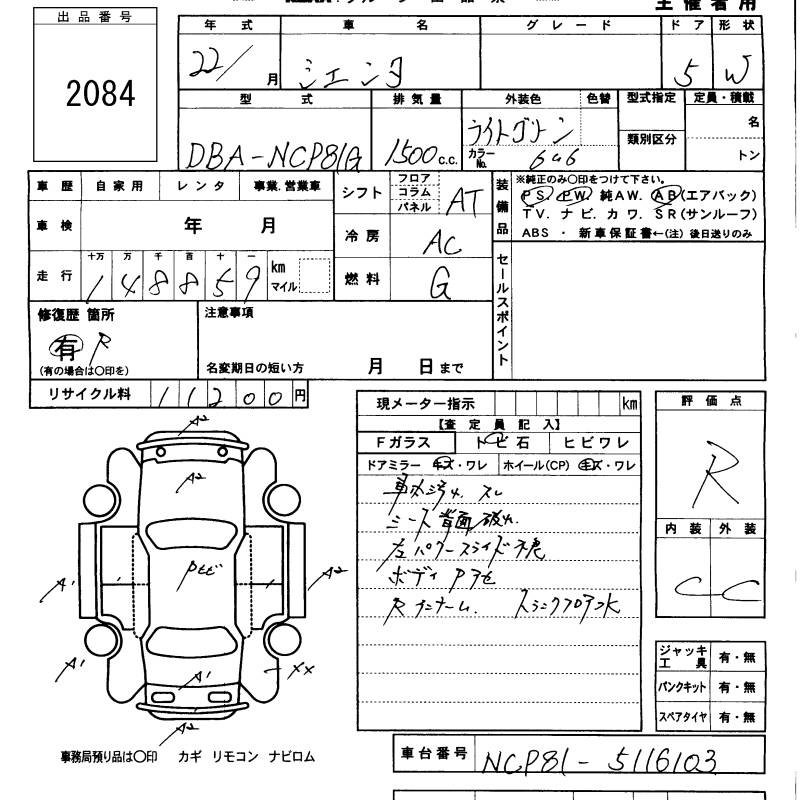 主催者用
出品番号
2084
年式 車名 グレード ドア 形状
22/ 月 シエンタ 5 W
型式 排気量 外装色 色替 型式指定 定員・積載
DBA-NCP81G 1500 c.c. ライトグリーン 名
カラーNo. 6U6 類別区分 トン
車歴 自家用 レンタ 事業.営業車
シフト フロア コラム パネル AT
装備品 ※純正のみ〇印をつけて下さい。
PS. PW. 純AW. AB(エアバック)
TV. ナビ. カワ. SR(サンルーフ)
ABS ・ 新車保証書←(注) 後日送りのみ
車検 年 月
冷房 AC
走行 十万 万 千 百 十 一
1 4 8 8 5 9 km マイル
燃料 G
セールスポイント
修復歴 箇所
有 R
(有の場合は〇印を)
注意事項
名変期日の短い方 月 日まで
リサイクル料 1 1 2 0 0 円
現メーター指示 km
【査定員記入】
Fガラス トビ石 ヒビワレ
ドアミラー キズ・ワレ ホイール(CP) キズ・ワレ
シート背面破れ
左パワースライド不良
ボディ
評価点
R
内装 外装
C C
A2
A2
A1
A2
A1
A1
XX
A2
ジャッキ工具 有・無
パンクキット 有・無
スペアタイヤ 有・無
事務局預り品は〇印 カギ リモコン ナビロム
車台番号 NCP81-5116103